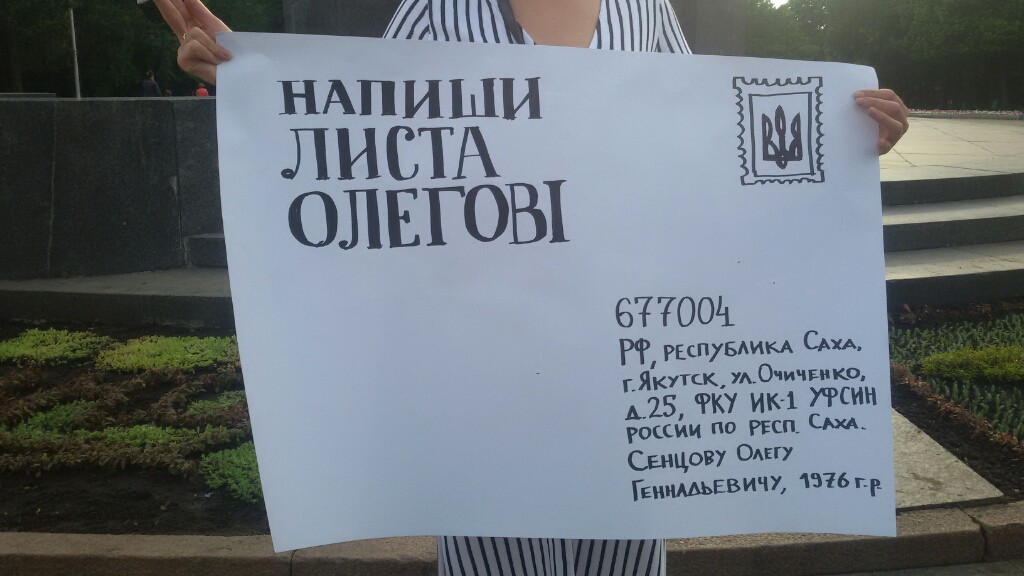 НАПИШИ
ЛИСТА
ОЛЕГОВІ
677004
РФ, РЕСПУБЛИКА САХА,
Г. ЯКУТСК, УЛ. ОЧИЧЕНКО,
Д. 25, ФКУ ИК-1 УФСИН
РОССИИ ПО РЕСП. САХА.
СЕНЦОВУ ОЛЕГУ
ГЕННАДЬЕВИЧУ, 1976 Г.Р.